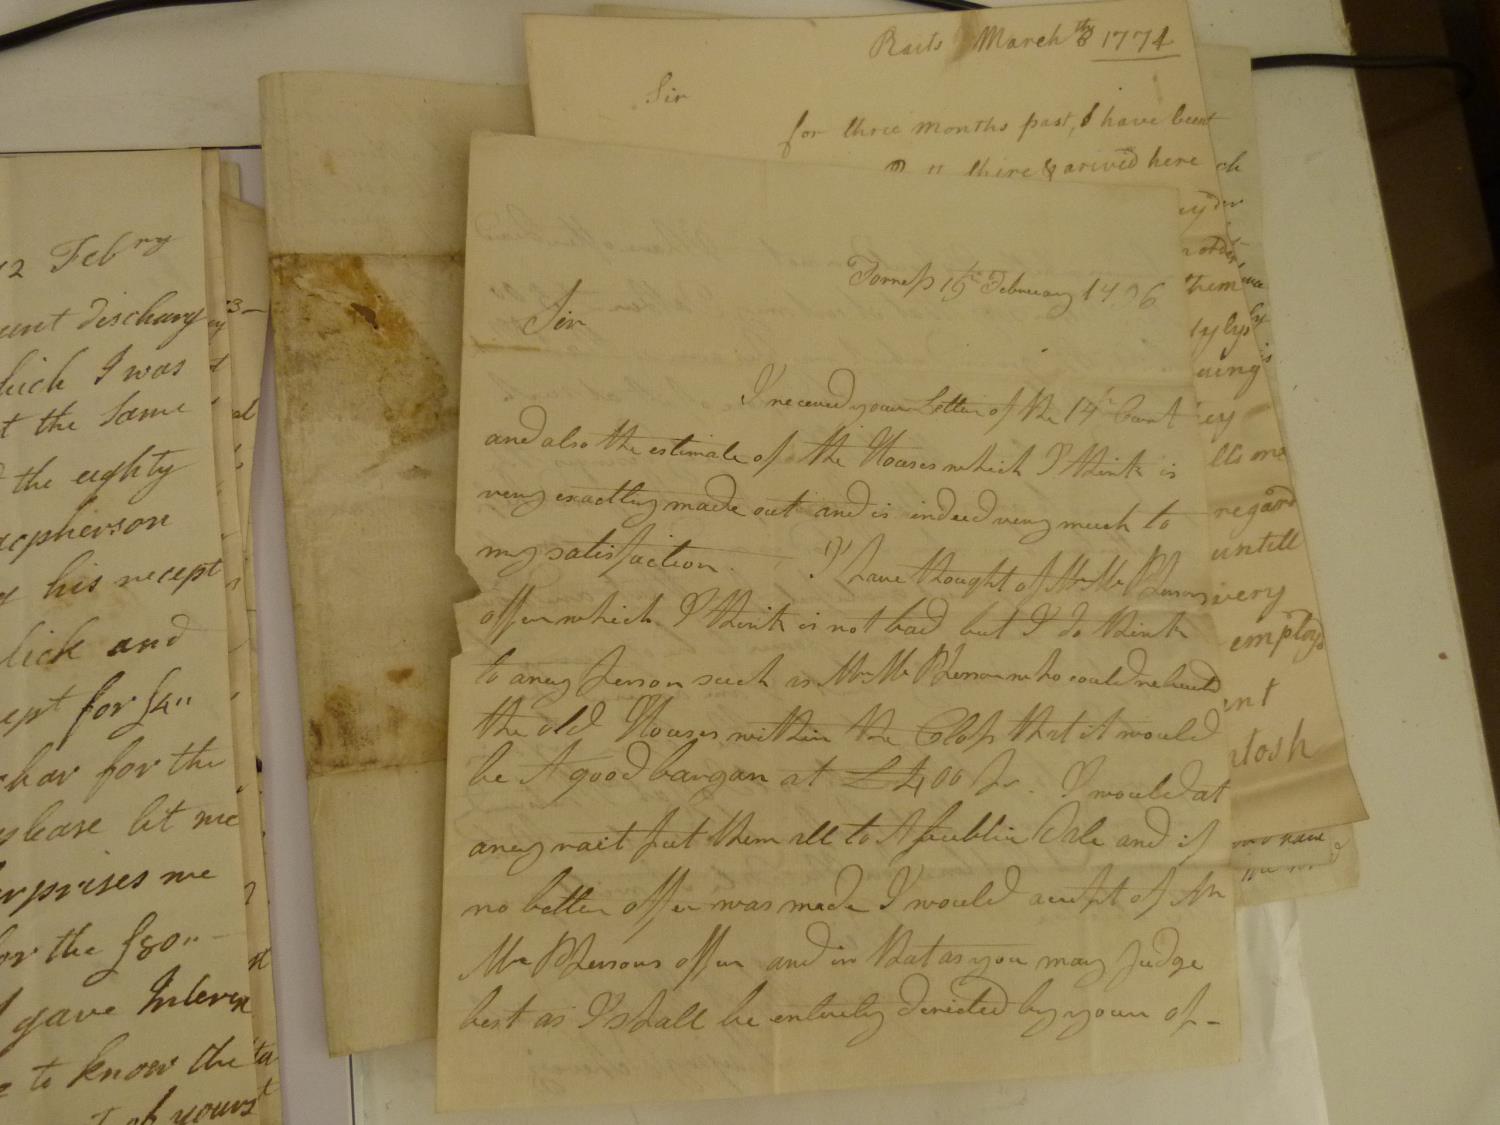 12 Febry
unt dischary
hich I was
t the same
the eighty
acpherson
his recept
lick and
ept for £4"
char for the
please let me
rprises me
for the £80"
I gave Inleren
to know the
of yours
Raits March 8th 1774
Sir
for three months past, I have been
there & arived here
Forress 15th February 17
Sir
I received your Letter of the 14t Curt
and also the estimate of the Houses which I think is
very exactley made out and is indeed very much to
my satisfaction. I have thought of Mr Mc Phersons
offer which I think is not bad but I do think
to aney person such as Mr Mc Pherson who could rebuild
the old Houses within the Closs that it would
be A good bargan at £400 I would at
aney rait put them all to A publin Sale and if
no better offer was made I would accept of Mr
Mc Phersons offer and in that as you may Judge
best as I shall be entirely directed by your of-
ck
them
regard
untill
very
employ
nt
ntosh